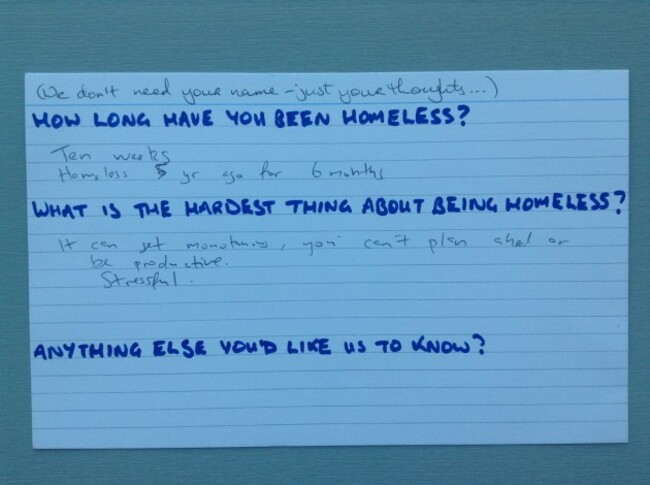 (We don't need your name - just your thoughts...)
HOW LONG HAVE YOU BEEN HOMELESS?
Ten weeks
Homeless 5 yr ago for 6 months
WHAT IS THE HARDEST THING ABOUT BEING HOMELESS?
It can get monotonus, you can't plan ahed or
be productive.
Stressful.
ANYTHING ELSE YOU'D LIKE US TO KNOW?